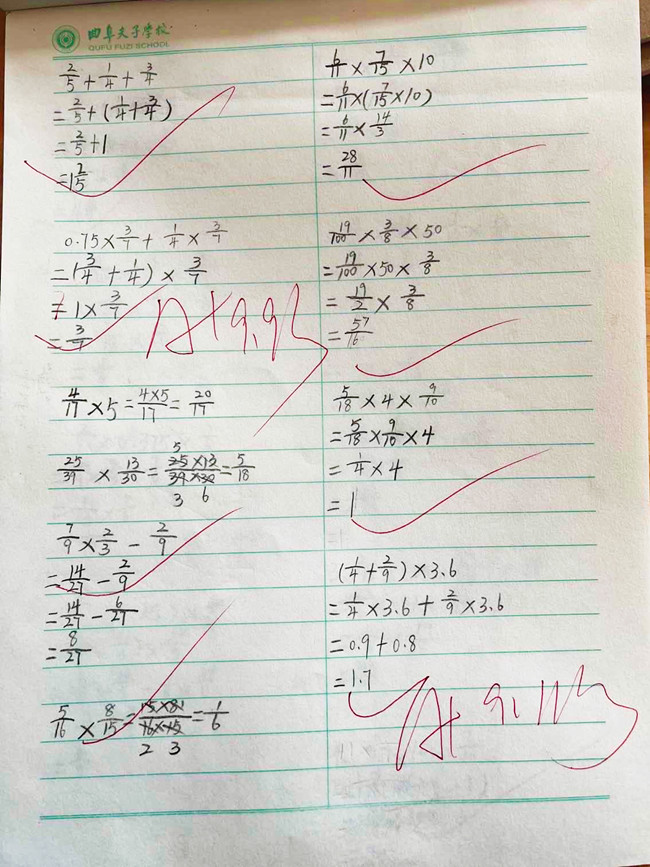 曲阜夫子学校
QUFU FUZI SCHOOL
2/5 + 1/4 + 3/4
= 2/5 + (1/4 + 3/4)
= 2/5 + 1
= 1 2/5
0.75 × 3/7 + 1/4 × 3/7
= (3/4 + 1/4) × 3/7
= 1 × 3/7
= 3/7
4/17 × 5 = 4×5/17 = 20/17
25/39 × 13/30 = 25×13/39×30 = 5/18
5
3 6
7/9 × 2/3 - 2/9
= 14/27 - 2/9
= 14/27 - 6/27
= 8/27
5/16 × 8/15 = 15×81/16×15 = 1/6
2 3
6/11 × 7/15 × 10
= 6/11 × (7/15 × 10)
= 6/11 × 14/3
= 28/11
19/100 × 3/8 × 50
= 19/100 × 50 × 3/8
= 19/2 × 3/8
= 57/16
5/18 × 4 × 9/10
= 5/18 × 9/10 × 4
= 1/4 × 4
= 1
(1/4 + 2/9) × 3.6
= 1/4 × 3.6 + 2/9 × 3.6
= 0.9 + 0.8
= 1.7